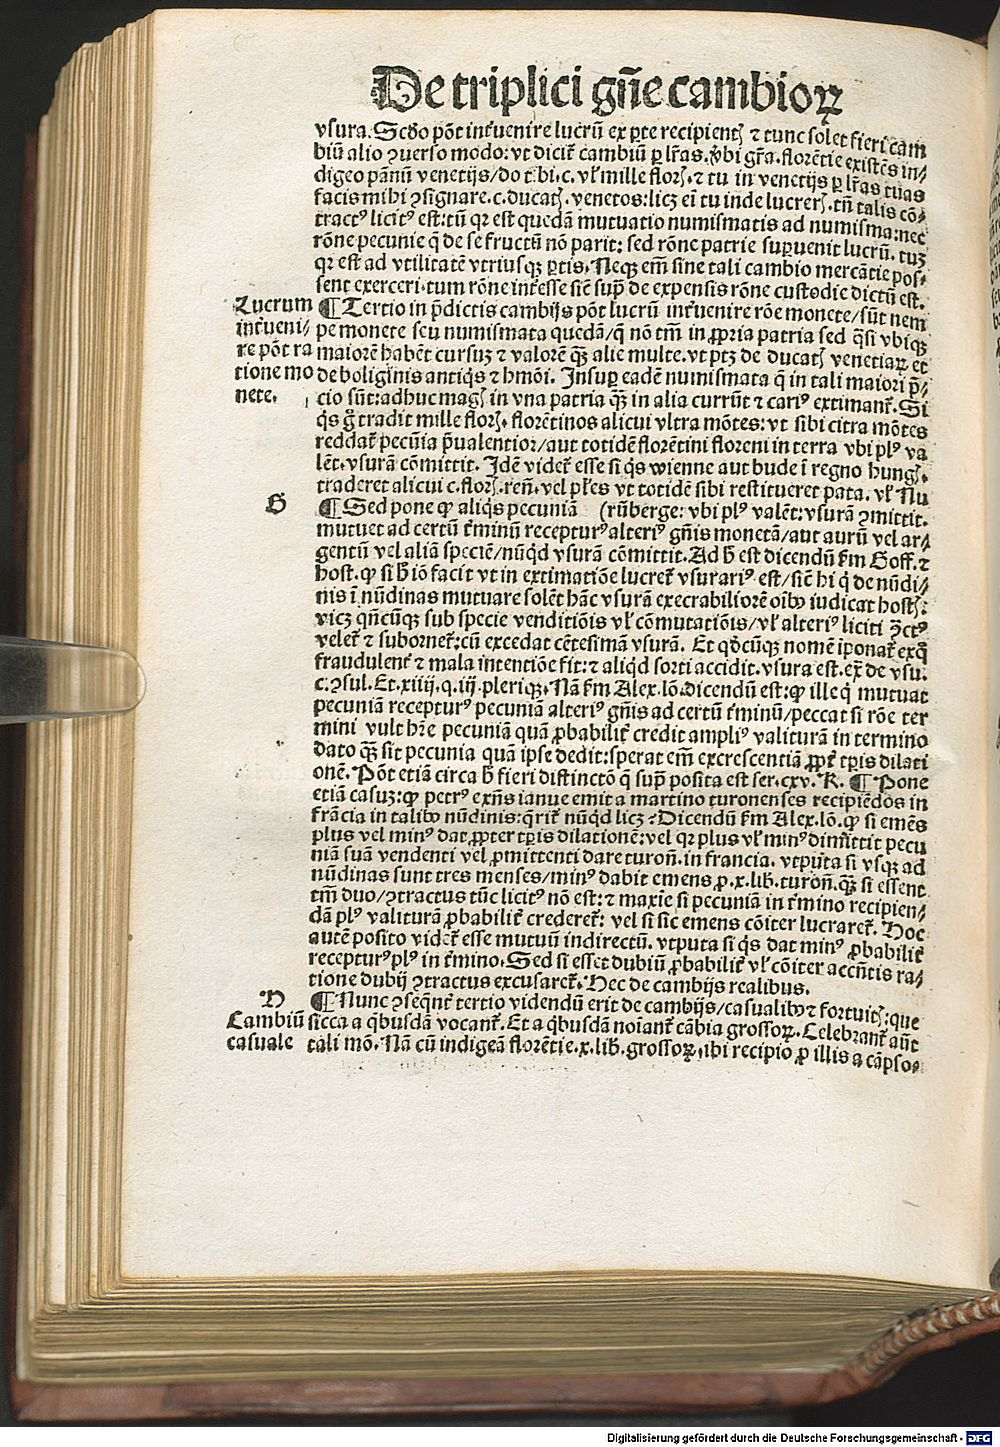 De triplici gñe cambioꝝ
vsura. Scd̄o põt int̃uenire lucrũ ex ꝑte recipientꝭ ⁊ tunc solet fieri cam
biũ alio ꝯuerso modo: vt dicit᷑ cambiũ ꝑ lr̃as. v̓bi gr̃a. florẽtie existẽs in/
digeo pãnũ venetijs/do t.bi.c. vl̓ mille florꝭ. ⁊ tu in venetijs ꝑ lr̃as tuas
facis mihi ꝯsignare.c.ducatꝭ. venetos: licꝫ em̃ tu inde lucrerꝭ. tñ talis cõ/
tractꝰ licitꝰ est: tũ qꝛ est quedã mutuatio numismatis ad numisma: nec
rõne pecunie q̃ de se fructũ nõ parit: sed rõne patrie supuenit lucrũ. tuꝫ
qꝛ est ad vtilitatẽ vtriusqꝫ ꝑtis. Neqꝫ em̃ sine tali cambio mercãtie pos/
sent exerceri. tum rõne int̃esse sic̃ sup̃ de expensis rõne custodie dictũ est.
Lucrum
int̃ueni/
re põt ra
tione mo
nete.
¶ Tertio in p̃dictis cambijs põt lucrũ int̃uenire rõe monete/sũt nem
pe monete seu numismata quedã/q̃ nõ tm̃ in ꝓpria patria sed q̃si vbiqꝫ
maiorẽ habẽt cursuꝫ ⁊ valorẽ qꝫ̃ alie multe. vt ptꝫ de ducatꝭ venetiaꝝ et
de boliginis antiq̃s ⁊ hmõi. Insuꝑ eadẽ numismata q̃ in tali maiori p̃/
cio sũt: adhuc magꝭ in vna patria qꝫ̃ in alia currũt ⁊ cariꝰ extimant᷑. Si
q̓s g̃ tradit mille florꝭ. florẽtinos alicui vltra mõtes: vt sibi citra mõtes
reddat᷑ pecũia p̃ualentior/aut totidẽ florẽtini floreni in terra vbi plꝰ va
lẽt. vsurã cõmittit. Idẽ videt᷑ esse si q̓s wienne aut bude ĩ regno hungꝭ.
traderet alicui c.florꝭ. reñ. vel pl̃es vt totidẽ sibi restitueret pata. vl̓ Nu
G
¶ Sed pone ꝙ aliq̓s pecuniã (rũberge: vbi plꝰ valẽt: vsurã ꝯmittit.
mutuet ad certũ t̃minũ recepturꝰ alteriꝰ gñis monetã/aut aurũ vel ar/
gentũ vel aliã speciẽ/nũq̓d vsurã cõmittit. Ad h̃ est dicendũ ẜm Goff. ⁊
host. ꝙ si h̃ iõ facit vt in extimatiõe lucret᷑ vsurariꝰ est/sic̃ hi q̓ de nũdi/
nis ĩ nũdinas mutuare solẽt hãc vsurã execrabiliorẽ oĩbꝰ iudicat hostꝭ:
vicꝫ qñcũqꝫ sub specie venditiõis vl̓ cõmutatiõis/vl̓ alteriꝰ liciti ꝯ̃ctꝰ
velet᷑ ⁊ subornet᷑: cũ excedat cẽtesimã vsurã. Et qd̓cũqꝫ nomẽ ĩponat᷑ exq̃
fraudulent᷑ ⁊ mala intentiõe fit: ⁊ aliq̓d sorti accidit. vsura est. ex̃ de vsu.
c. ꝯsul. Et.xiiij.q.iij.pleriqꝫ. Nã ẜm Alex. lõ. dicendũ est: ꝙ ille q̓ mutuat
pecuniã recepturꝰ pecuniã alteriꝰ gñis ad certũ t̃minũ/peccat si rõe ter
mini vult hr̃e pecuniã quã ꝓbabilit᷑ credit ampliꝰ valiturã in termino
dato qꝫ̃ sit pecunia quã ipse dedit: sperat em̃ excrescentiã ꝓpt̃ tꝑis dilati
onẽ. Põt etiã circa h̃ fieri distinctõ q̃ sup̃ posita est ser.cxv. R. ¶ Pone
etiã casuꝫ: ꝙ petrꝰ exñs ianue emit a martino turonenses recipiẽdos in
frãcia in talibꝰ nũdinis: q̃rit᷑ nũq̓d licꝫ? Dicendũ ẜm Alex. lõ. ꝙ si emẽs
plus vel minꝰ dat ꝓpter tꝑis dilationẽ: vel qꝛ plus vl̓ minꝰ dimittit pecu
niã suã vendenti vel ꝓmittenti dare turoñ. in francia. vtputa si vsqꝫ ad
nũdinas sunt tres menses/minꝰ dabit emens ꝓ.x.lib. turoñ. qꝫ̃ si essent
tm̃ duo/ꝯtractus tũc licitꝰ nõ est: ⁊ maxie si pecuniã in t̃mino recipien/
dã plꝰ valiturã ꝓbabilit᷑ crederet᷑: vel si sic emens cõiter lucraret᷑. Hoc
autẽ posito videt᷑ esse mutuũ indirectũ. vtputa si q̓s dat minꝰ ꝓbabilit᷑
recepturꝰ plꝰ in t̃mino. Sed si esset dubiũ ꝓbabilit᷑ vl̓ cõiter accñtis ra/
tione dubij ꝯtractus excusaret᷑. Hec de cambijs realibus.
H
Cambiũ
casuale
¶ Nunc ꝯseq̃nt᷑ tertio videndũ erit de cambijs/casualibꝰ ⁊ fortuitꝭ: que
sicca a q̓busdã vocant᷑. Et a q̓busdã noĩant᷑ cãbia grossoꝝ. Celebrant᷑ aũt
tali mõ. Nã cũ indigeã florẽtie.x.lib. grossoꝝ. ibi recipio ꝓ illis a cãpso/
Digitalisierung gefördert durch die Deutsche Forschungsgemeinschaft - DFG